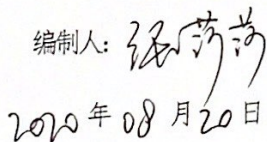 编制人：张莎莎
2020年08月20日